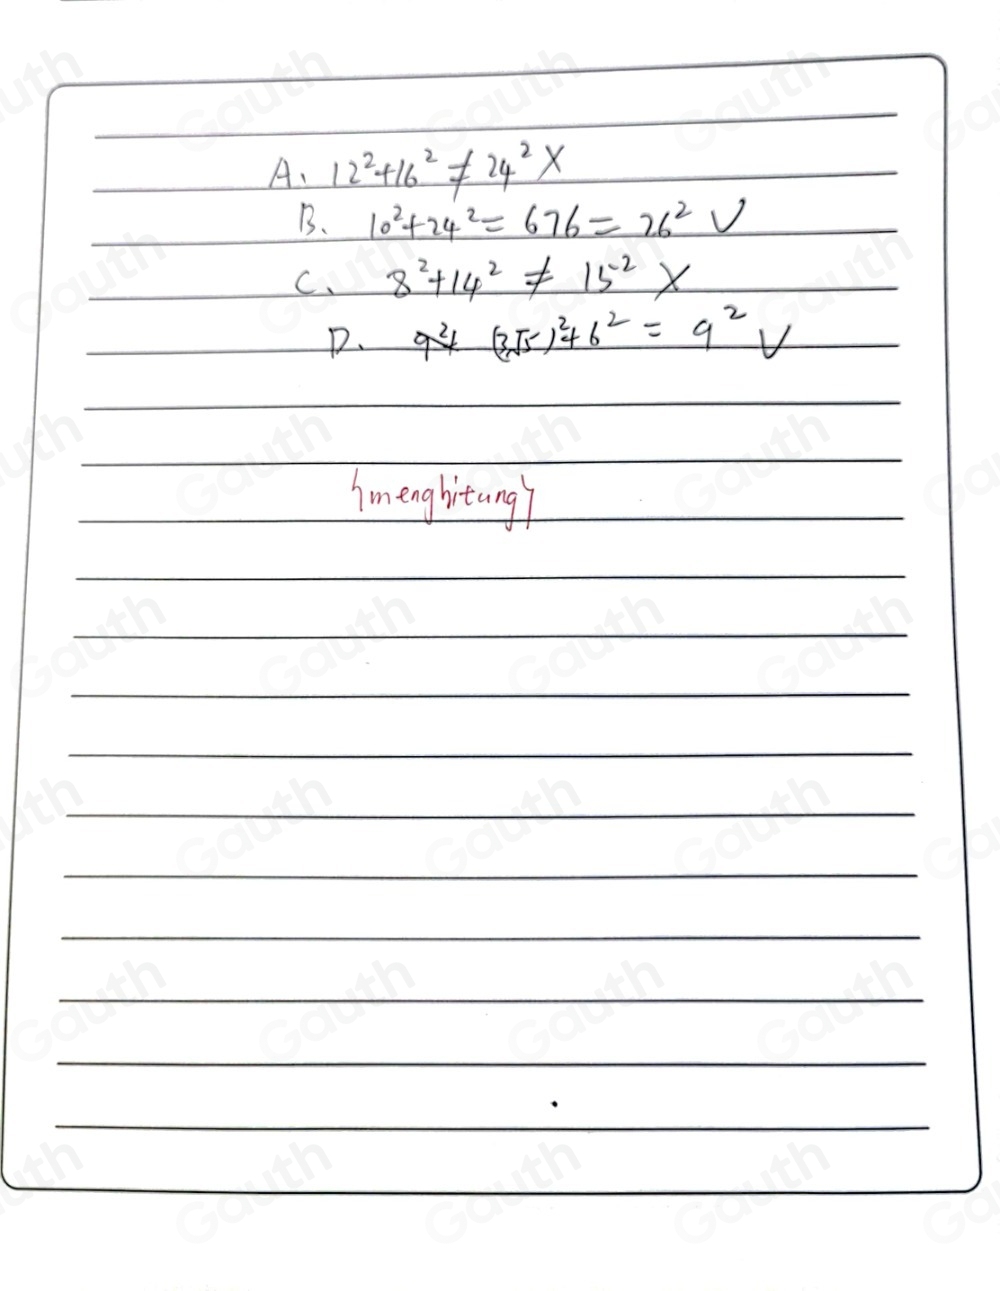 A、12²+16² ≠ 24² X
B、10²+24² = 676 = 26² V
C、8²+14² ≠ 15² X
D、(3√5)²+6² = 9² V
{menghitung}